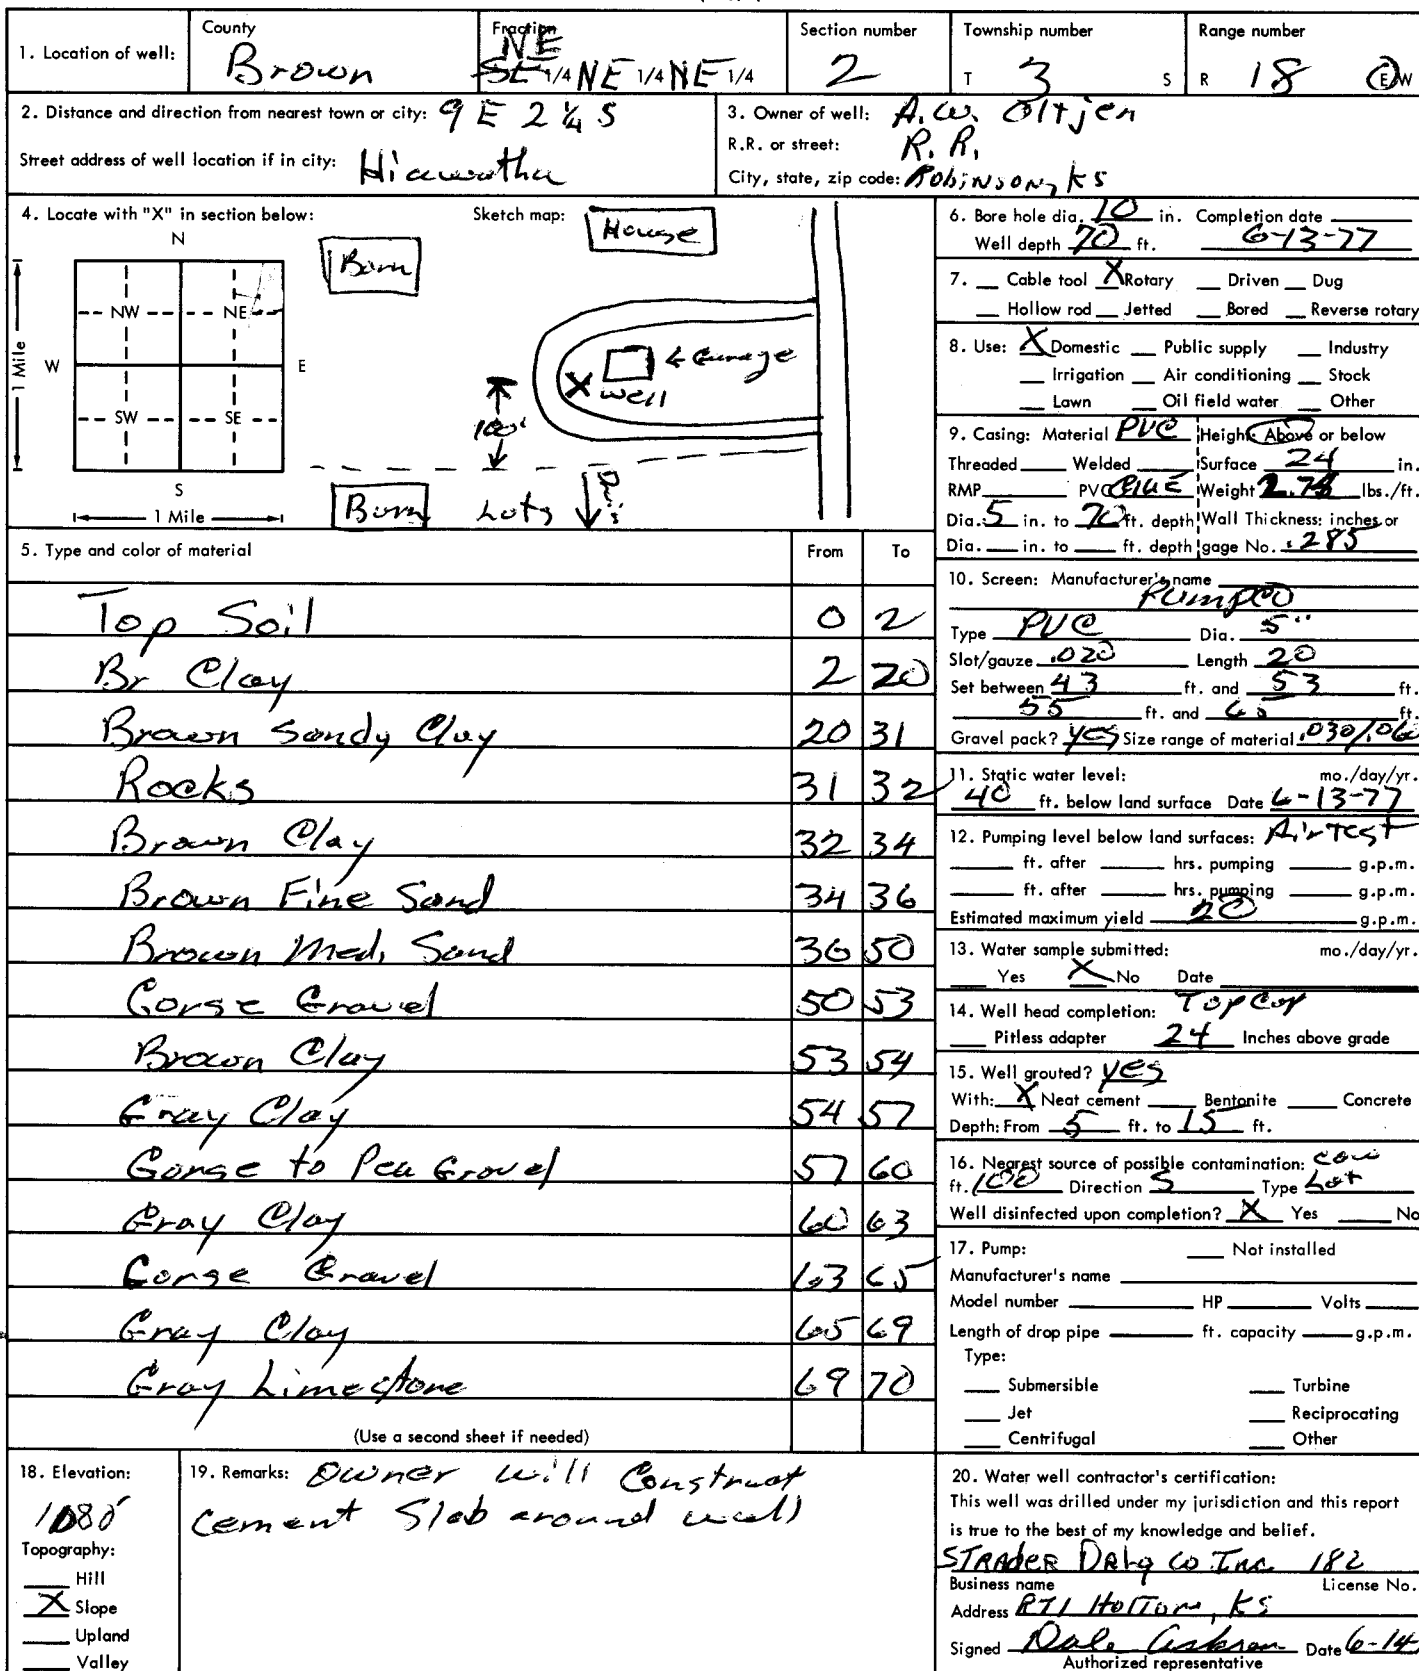 1. Location of well: County Brown Fraction NE SE 1/4 NE 1/4 NE 1/4 Section number 2 Township number T 3 S Range number R 18 E/W
2. Distance and direction from nearest town or city: 9 E 2 1/4 S
Street address of well location if in city: Hiawatha
3. Owner of well: A.W. Oltjen
R.R. or street: R.R.
City, state, zip code: Robinson, KS
4. Locate with "X" in section below:
N
NW NE
W E
SW SE
S
1 Mile
1 Mile
Sketch map:
House
Barn
← Garage
X well
100'
Barn Lots
5. Type and color of material From To
Top Soil 0 2
Br Clay 2 20
Brown Sandy Clay 20 31
Rocks 31 32
Brown Clay 32 34
Brown Fine Sand 34 36
Brown Med. Sand 36 50
Corse Gravel 50 53
Brown Clay 53 54
Gray Clay 54 57
Corse to Pea Gravel 57 60
Gray Clay 60 63
Corse Gravel 63 65
Gray Clay 65 69
Gray Limestone 69 70
(Use a second sheet if needed)
6. Bore hole dia. 10 in. Completion date
Well depth 70 ft. 6-13-77
7. Cable tool X Rotary Driven Dug
Hollow rod Jetted Bored Reverse rotary
8. Use: X Domestic Public supply Industry
Irrigation Air conditioning Stock
Lawn Oil field water Other
9. Casing: Material PVC Height: Above or below
Threaded Welded Surface 24 in.
RMP PVC Weight lbs./ft.
Dia. 5 in. to 70 ft. depth Wall Thickness: inches or
Dia. in. to ft. depth gage No. .285
10. Screen: Manufacturer's name
Pumpco
Type PVC Dia. 5"
Slot/gauze .020 Length 20
Set between 43 ft. and 53 ft.
55 ft. and 65 ft.
Gravel pack? yes Size range of material .030/.060
11. Static water level: mo./day/yr.
40 ft. below land surface Date 6-13-77
12. Pumping level below land surfaces: Air Test
ft. after hrs. pumping g.p.m.
ft. after hrs. pumping g.p.m.
Estimated maximum yield 20 g.p.m.
13. Water sample submitted: mo./day/yr.
Yes X No Date
14. Well head completion: Top Cap
Pitless adapter 24 Inches above grade
15. Well grouted? yes
With: X Neat cement Bentonite Concrete
Depth: From 5 ft. to 15 ft.
16. Nearest source of possible contamination: Cow
ft. 100 Direction S Type Lot
Well disinfected upon completion? X Yes No
17. Pump: Not installed
Manufacturer's name
Model number HP Volts
Length of drop pipe ft. capacity g.p.m.
Type:
Submersible Turbine
Jet Reciprocating
Centrifugal Other
18. Elevation:
1080'
Topography:
Hill
X Slope
Upland
Valley
19. Remarks: Owner will Construct
cement Slab around well
20. Water well contractor's certification:
This well was drilled under my jurisdiction and this report
is true to the best of my knowledge and belief.
STRADER Drlg Co Inc. 182
Business name License No.
Address RT1 Holton, KS
Signed Dale Date 6-14
Authorized representative